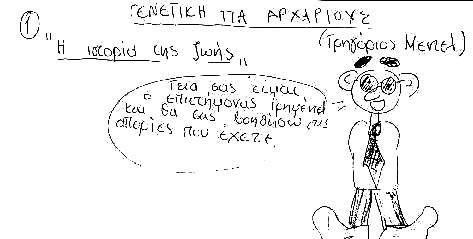 ΓΕΝΕΤΙΚΗ ΓΙΑ ΑΡΧΑΡΙΟΥΣ
① "Η ιστορία της ζωής"
(Γρηγόριος Μέντελ)
Γεια σας είμαι
ο επιστήμονας
και θα σας βοηθήσω στις
απορίες που έχετε.